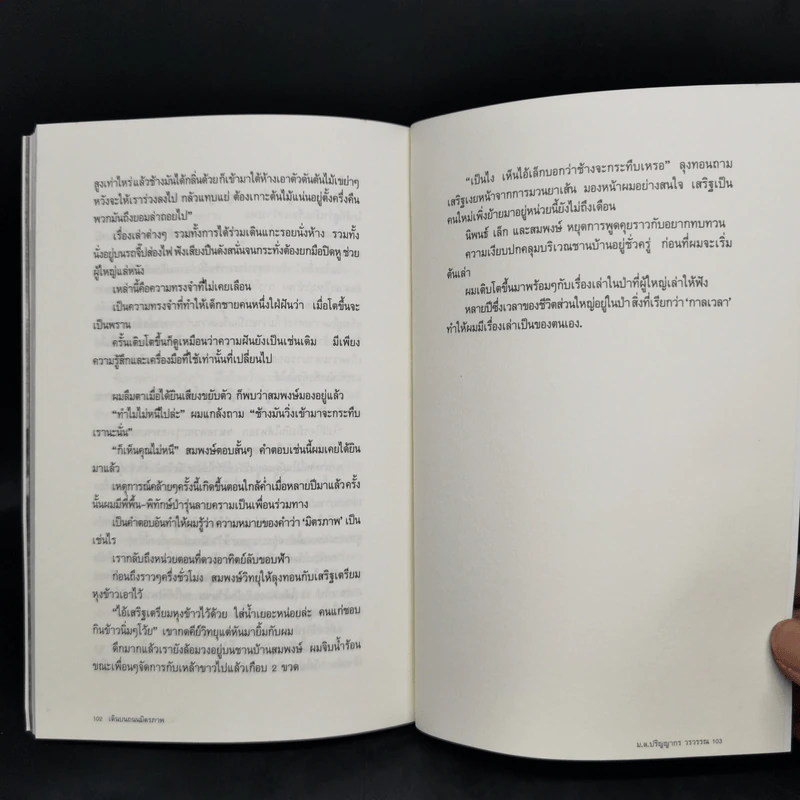 สูงเท่าไหร่แล้วช้างมันได้กลิ่นด้วย ก็เข้ามาใต้ห้างเอาตัวดันต้นไม้เขย่าๆ
หวังจะให้เราร่วงลงไป กลัวแทบแย่ ต้องเกาะต้นไม้แน่นอยู่ตั้งครึ่งคืน
พวกมันถึงยอมล่าถอยไป”
เรื่องเล่าต่างๆ รวมทั้งการได้ร่วมเดินแกะรอยนั่งห้าง รวมทั้ง
นั่งอยู่บนรถจี๊ปส่องไฟ ฟังเสียงปืนดังสนั่นจนกระทั่งต้องยกมือปิดหู ช่วย
ผู้ใหญ่แล่หนัง
เหล่านี้คือความทรงจำที่ไม่เคยเลือน
เป็นความทรงจำที่ทำให้เด็กชายคนหนึ่งใฝ่ฝันว่า เมื่อโตขึ้นจะ
เป็นพราน
ครั้นเติบโตขึ้นก็ดูเหมือนว่าความฝันยังเป็นเช่นเดิม มีเพียง
ความรู้สึกและเครื่องมือที่ใช้เท่านั้นที่เปลี่ยนไป
ผมลืมตาเมื่อได้ยินเสียงขยับตัว ก็พบว่าสมพงษ์มองอยู่แล้ว
“ทำไมไม่หนีไปล่ะ” ผมแกล้งถาม “ช้างมันวิ่งเข้ามาจะกระทืบ
เรานะนั่น”
“ก็เห็นคุณไม่หนี” สมพงษ์ตอบสั้นๆ คำตอบเช่นนี้ผมเคยได้ยิน
มาแล้ว
เหตุการณ์คล้ายๆครั้งนี้เกิดขึ้นตอนใกล้ค่ำเมื่อหลายปีมาแล้วครั้ง
นั้นผมมีพี่พื้น-พิทักษ์ป่ารุ่นลายครามเป็นเพื่อนร่วมทาง
เป็นคำตอบอันทำให้ผมรู้ว่า ความหมายของคำว่า ‘มิตรภาพ’ เป็น
เช่นไร
เรากลับถึงหน่วยตอนที่ดวงอาทิตย์ลับขอบฟ้า
ก่อนถึงราวๆครึ่งชั่วโมง สมพงษ์วิทยุให้ลุงทอนกับเสริฐเตรียม
หุงข้าวเอาไว้
“ไอ้เสริฐเตรียมหุงข้าวไว้ด้วย ใส่น้ำเยอะหน่อยล่ะ คนแก่ชอบ
กินข้าวนิ่มๆโว้ย” เขากดคีย์วิทยุแต่หันมายิ้มกับผม
ดึกมากแล้วเรายังล้อมวงอยู่บนชานบ้านสมพงษ์ ผมจิบน้ำร้อน
ขณะเพื่อนๆจัดการกับเหล้าขาวไปแล้วเกือบ 2 ขวด
102 เดินบนถนนมิตรภาพ
“เป็นไง เห็นไอ้เล็กบอกว่าช้างจะกระทืบเหรอ” ลุงทอนถาม
เสริฐเงยหน้าจากการมวนยาเส้น มองหน้าผมอย่างสนใจ เสริฐเป็น
คนใหม่เพิ่งย้ายมาอยู่หน่วยนี้ยังไม่ถึงเดือน
นิพนธ์ เล็ก และสมพงษ์ หยุดการพูดคุยราวกับอยากทบทวน
ความเงียบปกคลุมบริเวณชานบ้านอยู่ชั่วครู่ ก่อนที่ผมจะเริ่ม
ต้นเล่า
ผมเติบโตขึ้นมาพร้อมๆกับเรื่องเล่าในป่าที่ผู้ใหญ่เล่าให้ฟัง
หลายปีซึ่งเวลาของชีวิตส่วนใหญ่อยู่ในป่า สิ่งที่เรียกว่า ‘กาลเวลา’
ทำให้ผมมีเรื่องเล่าเป็นของตนเอง.
ม.ล.ปริญญากร วรวรรณ 103